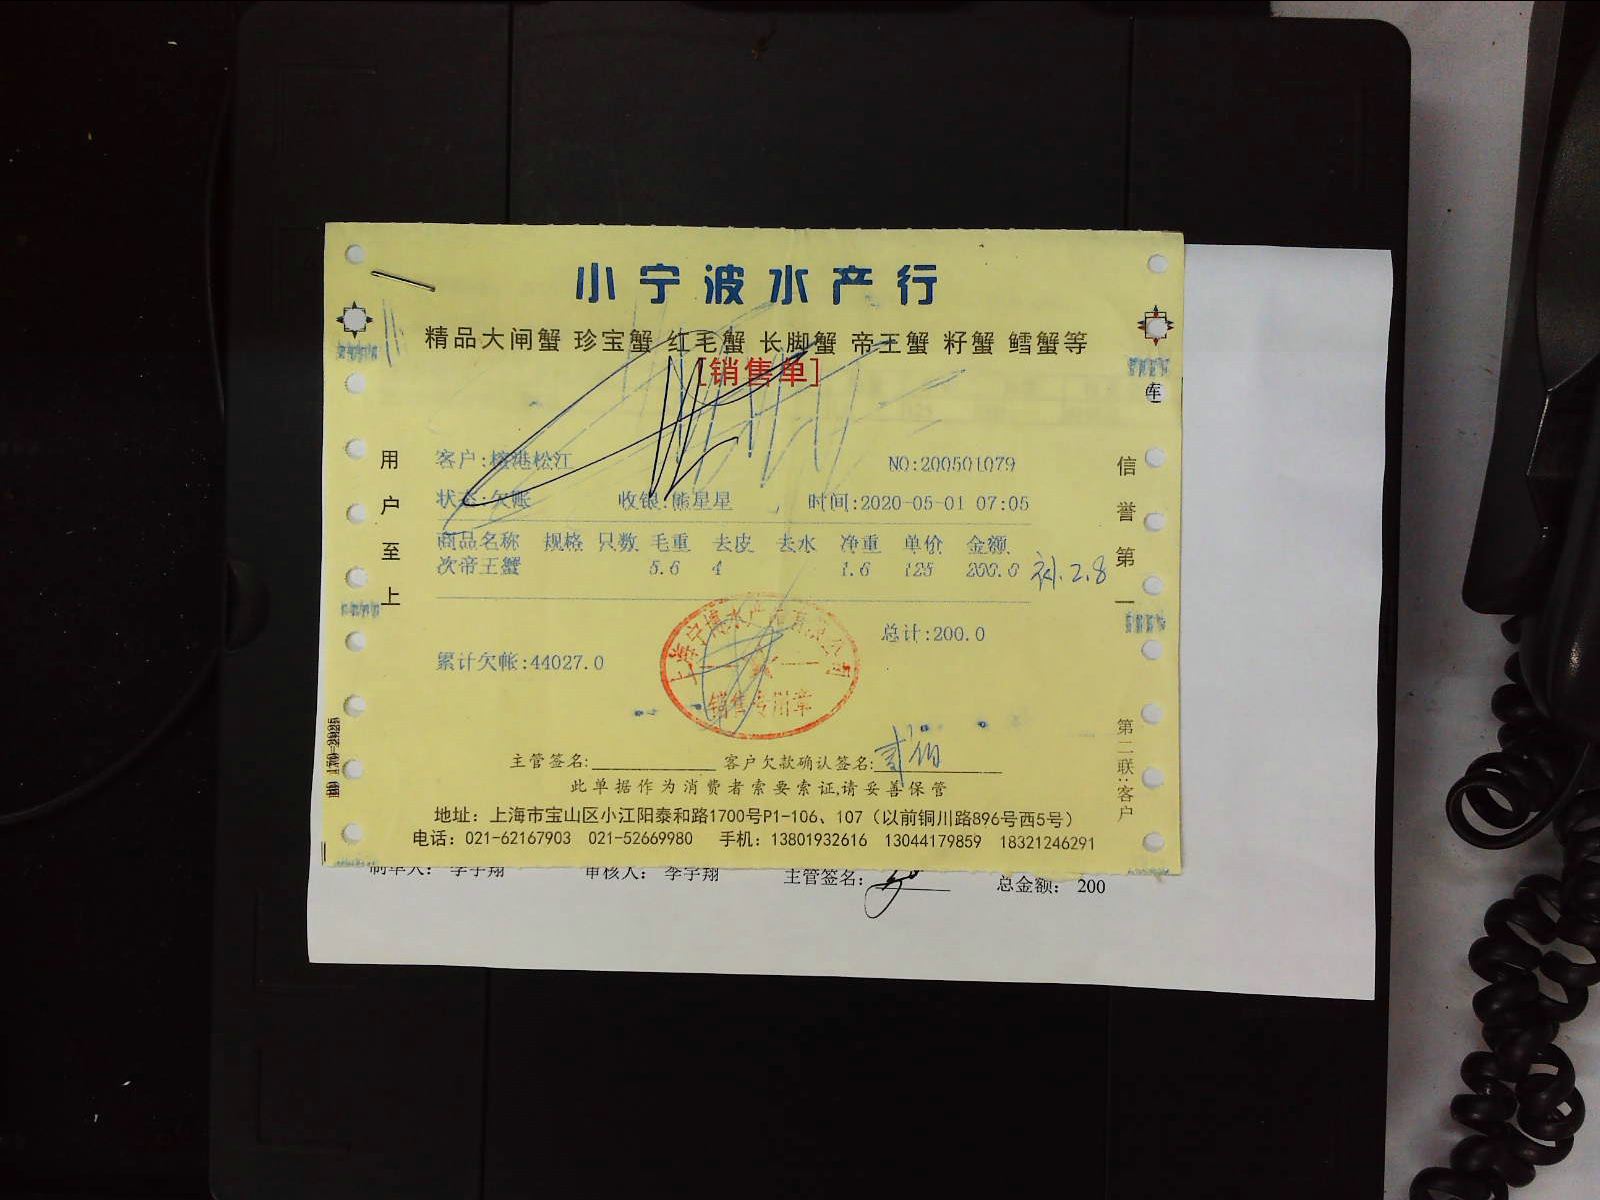 小宁波水产行
精品大闸蟹 珍宝蟹 红毛蟹 长脚蟹 帝王蟹 籽蟹 鳕蟹等
[销售单]
客户:榕港松江 NO:200501079
状态:欠帐 收银:熊星星 时间:2020-05-01 07:05
商品名称 规格 只数 毛重 去皮 去水 净重 单价 金额
次帝王蟹 5.6 4 1.6 125 200.0 补.2.8
总计:200.0
累计欠帐:44027.0
销售专用章
主管签名: 客户欠款确认签名:贰佰
此单据作为消费者索要索证,请妥善保管
地址：上海市宝山区小江阳泰和路1700号P1-106、107（以前铜川路896号西5号）
电话：021-62167903 021-52669980 手机：13801932616 13044179859 18321246291
用户至上
信誉第一
第二联:客户
制单人： 李宇翔 审核人： 李宇翔 主管签名： 总金额： 200